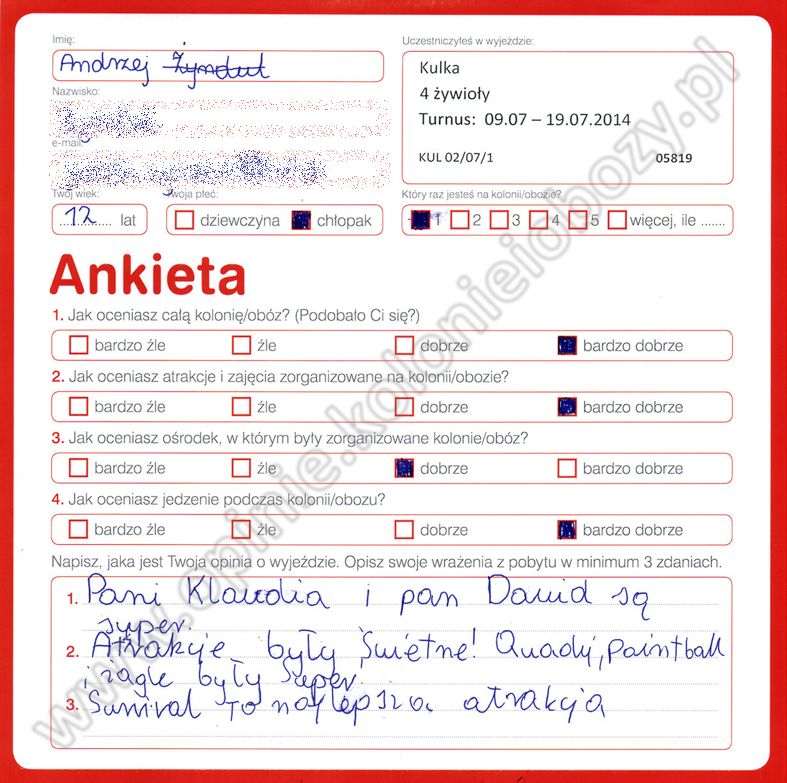 Imię:
Andrzej
Nazwisko:
e-mail:
Twój wiek:
12 lat
Twoja płeć:
dziewczyna chłopak
Uczestniczyłeś w wyjeździe:
Kulka
4 żywioły
Turnus: 09.07 – 19.07.2014
KUL 02/07/1 05819
Który raz jesteś na kolonii/obozie?
1 2 3 4 5 więcej, ile .......
Ankieta
1. Jak oceniasz całą kolonię/obóz? (Podobało Ci się?)
bardzo źle źle dobrze bardzo dobrze
2. Jak oceniasz atrakcje i zajęcia zorganizowane na kolonii/obozie?
bardzo źle źle dobrze bardzo dobrze
3. Jak oceniasz ośrodek, w którym były zorganizowane kolonie/obóz?
bardzo źle źle dobrze bardzo dobrze
4. Jak oceniasz jedzenie podczas kolonii/obozu?
bardzo źle źle dobrze bardzo dobrze
Napisz, jaka jest Twoja opinia o wyjeździe. Opisz swoje wrażenia z pobytu w minimum 3 zdaniach.
1. Pani Klaudia i pan Dawid są
super.
2. Atrakcje były świetne! Quady, paintball
i żagle były super.
3. Survival to najlepsza atrakcja
www.opinie.kolonieiobozy.pl